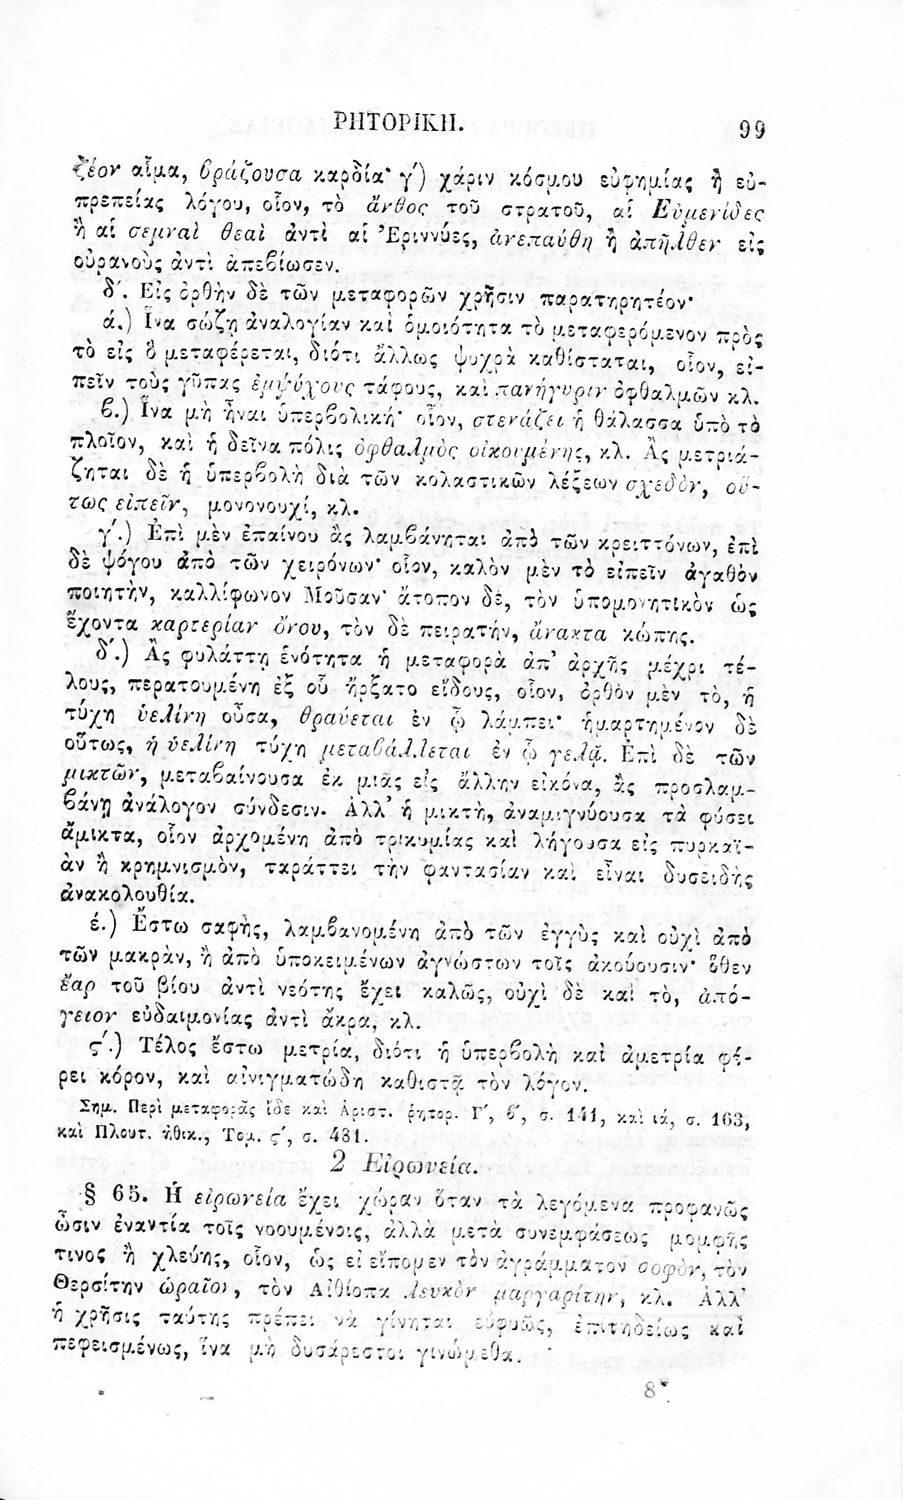 ΡΗΤΟΡΙΚΗ. 99
ζέον αἷμα, βράζουσα καρδία· γ́) χάριν κόσμου εὐφημίας ἢ εὐ-
πρεπείας λόγου, οἷον, τὸ ἄνθος τοῦ στρατοῦ, αἱ Εὐμενίδες
ἢ αἱ σεμναὶ θεαὶ ἀντὶ αἱ Ἐριννύες, ἀνεπαύθη ἢ ἀπῆλθεν εἰς
οὐρανοὺς ἀντὶ ἀπεβίωσεν.
δ́. Εἰς ὀρθὴν δὲ τῶν μεταφορῶν χρῆσιν παρατηρητέον·
ά.) Ἵνα σώζῃ ἀναλογίαν καὶ ὁμοιότητα τὸ μεταφερόμενον πρὸς
τὸ εἰς ὃ μεταφέρεται, διότι ἄλλως ψυχρὰ καθίσταται, οἷον, εἰ-
πεῖν τοὺς γῦπας ἐμψύχους τάφους, καὶ πανήγυριν ὀφθαλμῶν κλ.
β.) Ἵνα μὴ ἦναι ὑπερβολική· οἷον, στενάζει ἡ θάλασσα ὑπὸ τὸ
πλοῖον, καὶ ἡ δεῖνα πόλις ὀφθαλμὸς οἰκουμένης, κλ. Ἂς μετριά-
ζηται δὲ ἡ ὑπερβολὴ διὰ τῶν κολαστικῶν λέξεων σχεδὸν, οὕ-
τως εἰπεῖν, μονονουχί, κλ.
γ́.) Ἐπὶ μὲν ἐπαίνου ἂς λαμβάνηται ἀπὸ τῶν κρειττόνων, ἐπὶ
δὲ ψόγου ἀπὸ τῶν χειρόνων· οἷον, καλὸν μὲν τὸ εἰπεῖν ἀγαθὸν
ποιητὴν, καλλίφωνον Μοῦσαν· ἄτοπον δὲ, τὸν ὑπομονητικὸν ὡς
ἔχοντα καρτερίαν ὄνου, τὸν δὲ πειρατήν, ἄνακτα κώπης.
δ́.) Ἂς φυλάττῃ ἑνότητα ἡ μεταφορὰ ἀπ’ ἀρχῆς μέχρι τέ-
λους, περατουμένη ἐξ οὗ ἤρξατο εἴδους, οἷον, ὀρθὸν μὲν τὸ, ἡ
τύχη ὑελίνη οὖσα, θραύεται ἐν ᾧ λάμπει· ἡμαρτημένον δὲ
οὕτως, ἡ ὑελίνη τύχη μεταβάλλεται ἐν ᾧ γελᾷ. Ἐπὶ δὲ τῶν
μικτῶν, μεταβαίνουσα ἐκ μιᾶς εἰς ἄλλην εἰκόνα, ἂς προσλαμ-
βάνῃ ἀνάλογον σύνδεσιν. Ἀλλ’ ἡ μικτὴ, ἀναμιγνύουσα τὰ φύσει
ἄμικτα, οἷον ἀρχομένη ἀπὸ τρικυμίας καὶ λήγουσα εἰς πυρκαϊ-
ὰν ἢ κρημνισμὸν, ταράττει τὴν φαντασίαν καὶ εἶναι δυσειδὴς
ἀνακολουθία.
έ.) Ἔστω σαφὴς, λαμβανομένη ἀπὸ τῶν ἐγγὺς καὶ οὐχὶ ἀπὸ
τῶν μακρὰν, ἢ ἀπὸ ὑποκειμένων ἀγνώστων τοῖς ἀκούουσιν· ὅθεν
ἔαρ τοῦ βίου ἀντὶ νεότης ἔχει καλῶς, οὐχὶ δὲ καὶ τὸ, ἀπό-
γειον εὐδαιμονίας ἀντὶ ἄκρα, κλ.
ς́.) Τέλος ἔστω μετρία, διότι ἡ ὑπερβολὴ καὶ ἀμετρία φέ-
ρει κόρον, καὶ αἰνιγματώδη καθιστᾷ τὸν λόγον.
Σημ. Περὶ μεταφορᾶς ἴδε καὶ Ἀριστ. ῥητορ. Γ́, β́, σ. 141, καὶ ιά, σ. 163,
καὶ Πλουτ. ἠθικ., Τομ. ς́, σ. 431.
2 Εἰρωνεία.
§ 65. Ἡ εἰρωνεία ἔχει χώραν ὅταν τὰ λεγόμενα προφανῶς
ὦσιν ἐναντία τοῖς νοουμένοις, ἀλλὰ μετὰ συνεμφάσεως μομφῆς
τινος ἢ χλεύης, οἷον, ὡς εἰ εἴπομεν τὸν ἀγράμματον σοφὸν, τὸν
Θερσίτην ὡραῖον, τὸν Αἰθίοπα λευκὸν μαργαρίτην, κλ. Ἀλλ’
ἡ χρῆσις ταύτης πρέπει νὰ γίνηται εὐφυῶς, ἐπιτηδείως καὶ
πεφεισμένως, ἵνα μὴ δυσάρεστοι γινώμεθα.
8*